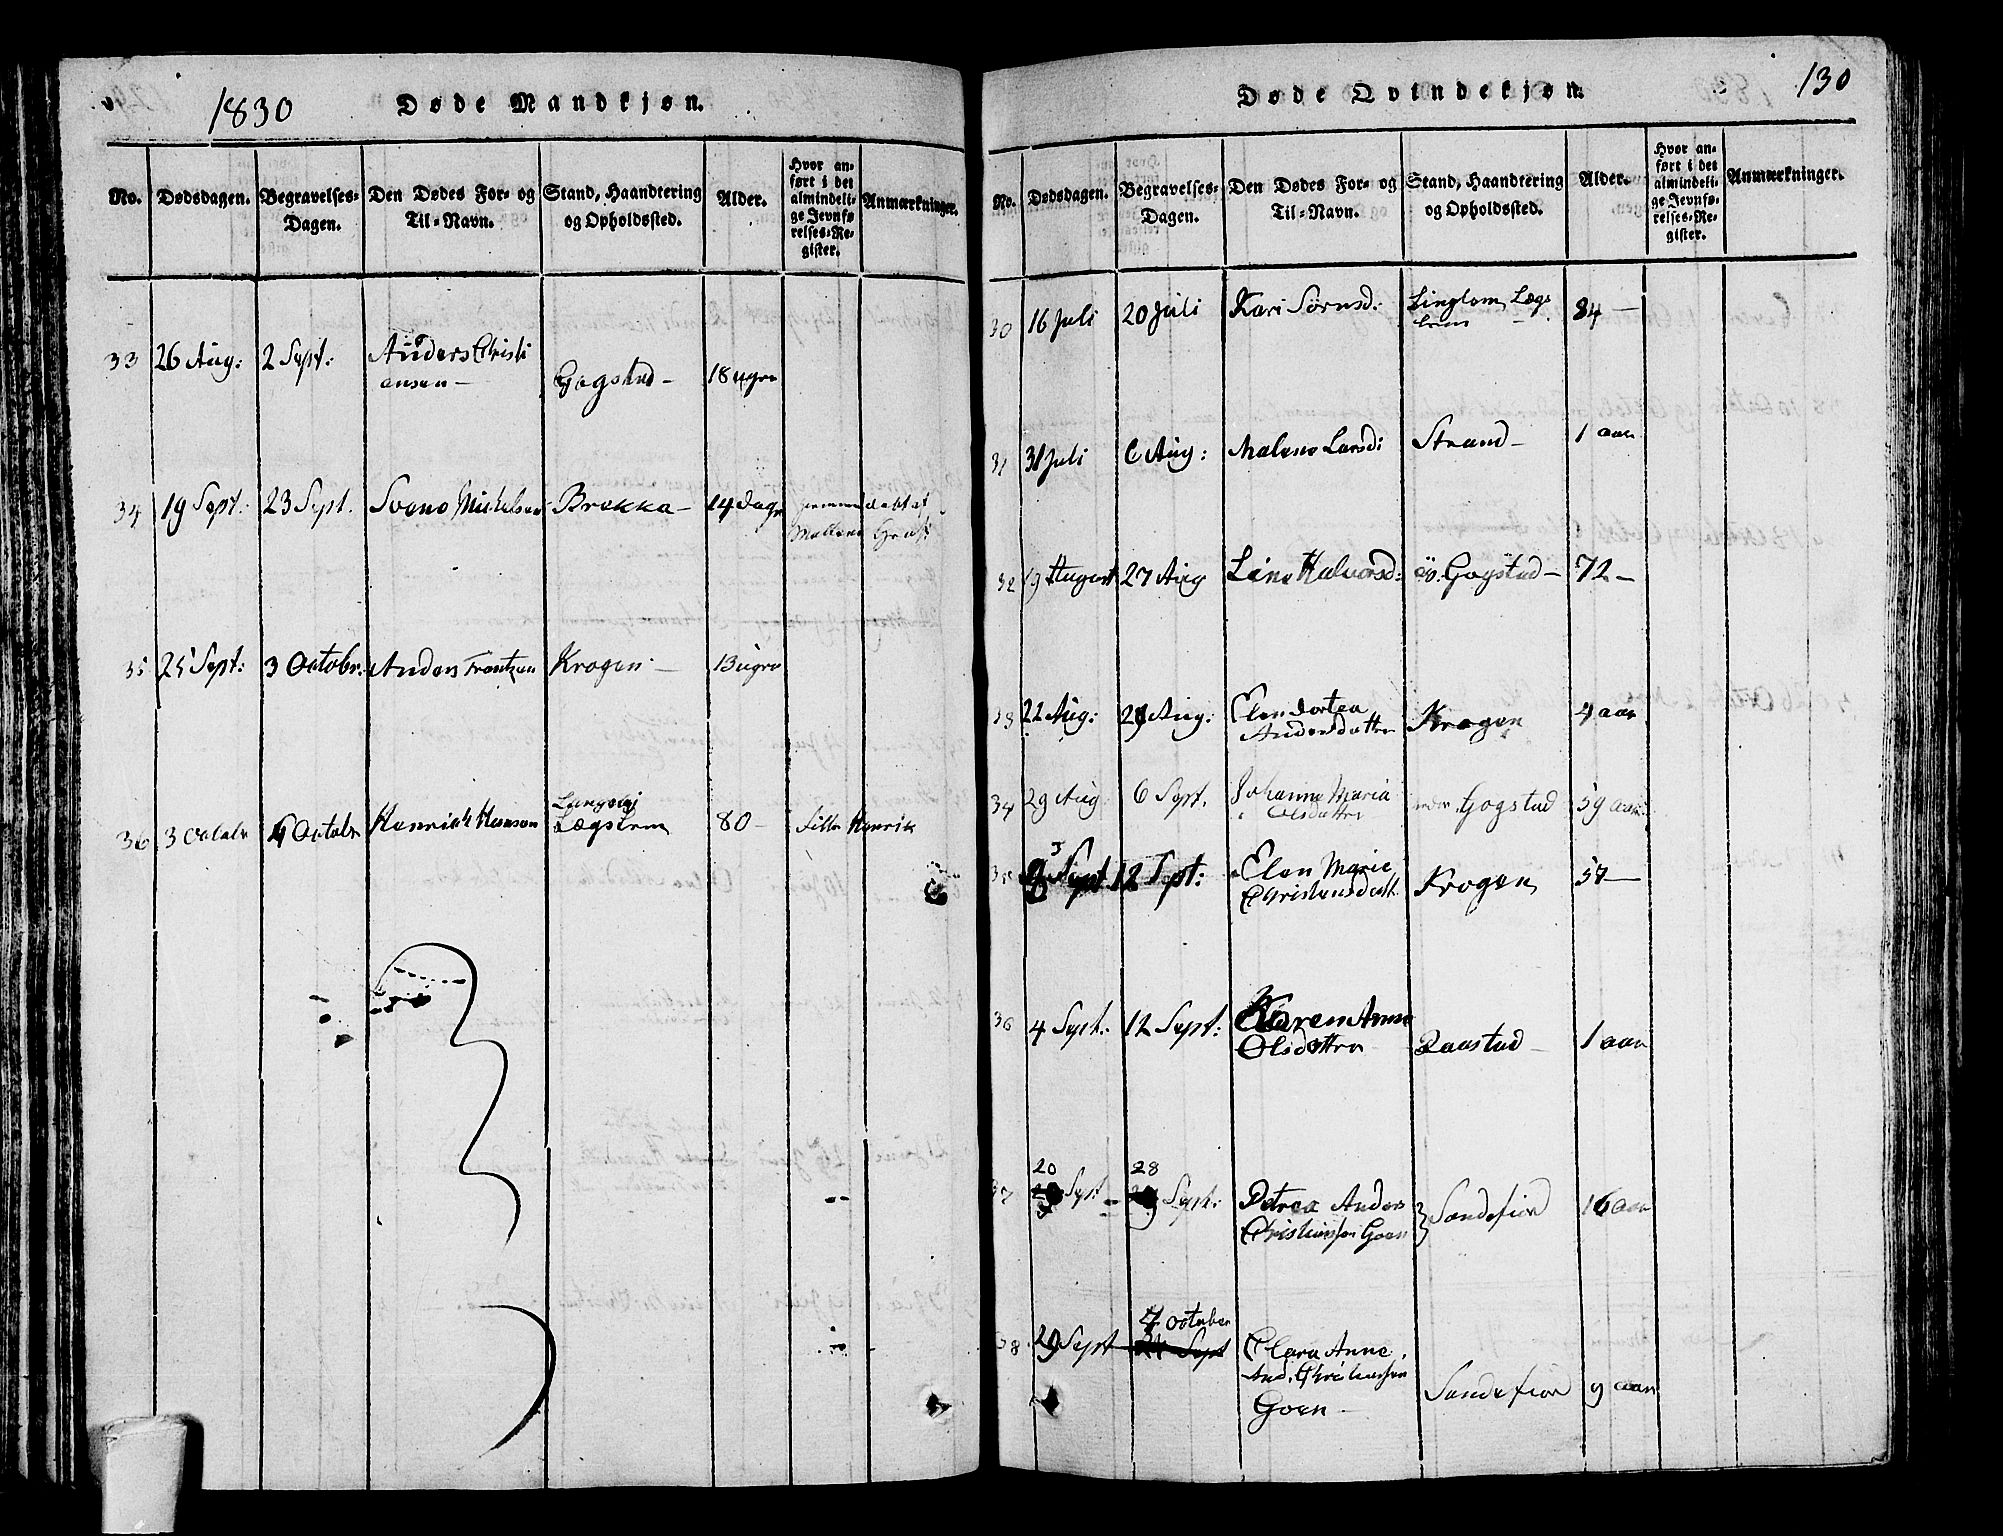 1830 Døde Mandkjøn.
No. Dødsdagen. Begravelses-Dagen. Den Dødes For- og Til-Navn. Stand, Haandtering og Opholdssted. Alder. Hvor anført i det almindelige Jevnførelses-Register. Anmærkninger.
33 26 Aug: 2 Sept: Anders Christi
ansen — Gogstad — 18 ugre
34 19 Sept: 23 Sept. Svene Mickelsen Brekka — 14 Dage
35 25 Sept: 3 Octobr: Anders Frantzen Krogen — 13 ugre
36 3 Octobr 4 Octobr Henrich Hansen
Lægslem 80 — Lille Henrik
Døde Qvindekjøn. 130
No. Dødsdagen. Begravelses-Dagen. Den Dødes For- og Til-Navn. Stand, Haandtering og Opholdssted. Alder. Hvor anført i det almindelige Jevnførelses-Register. Anmærkninger.
30 16 Juli 20 Juli Kari Sørnsd: Lægs
lem 84 —
31 31 Juli 6 Aug: Malene Larsd: Strand — 1 aar
32 19 August 27 Aug Line Halvorsd: øv. Gogstad — 72 —
33 22 Aug: 29 Aug: Elen Dortea
Andersdatter Krogen 4 aar
34 29 Aug 6 Sept. Johanne Maria
Olsdatter Gogstad 59 aar
35 Sept 12 Sept: Elen Marie
Christensdatt. Krogen 57 —
36 4 Sept: 12 Sept: Karen Anne
Olsdatter Raastad — 1 aar
37 20 Sept — 28 Sept: Petrea Anders
Christiansen Goen Sandefior 16 aar
38 29 Sept 4 October
Sept Clara Anne
And. Christiansen
Goen — Sandefior 9 aar